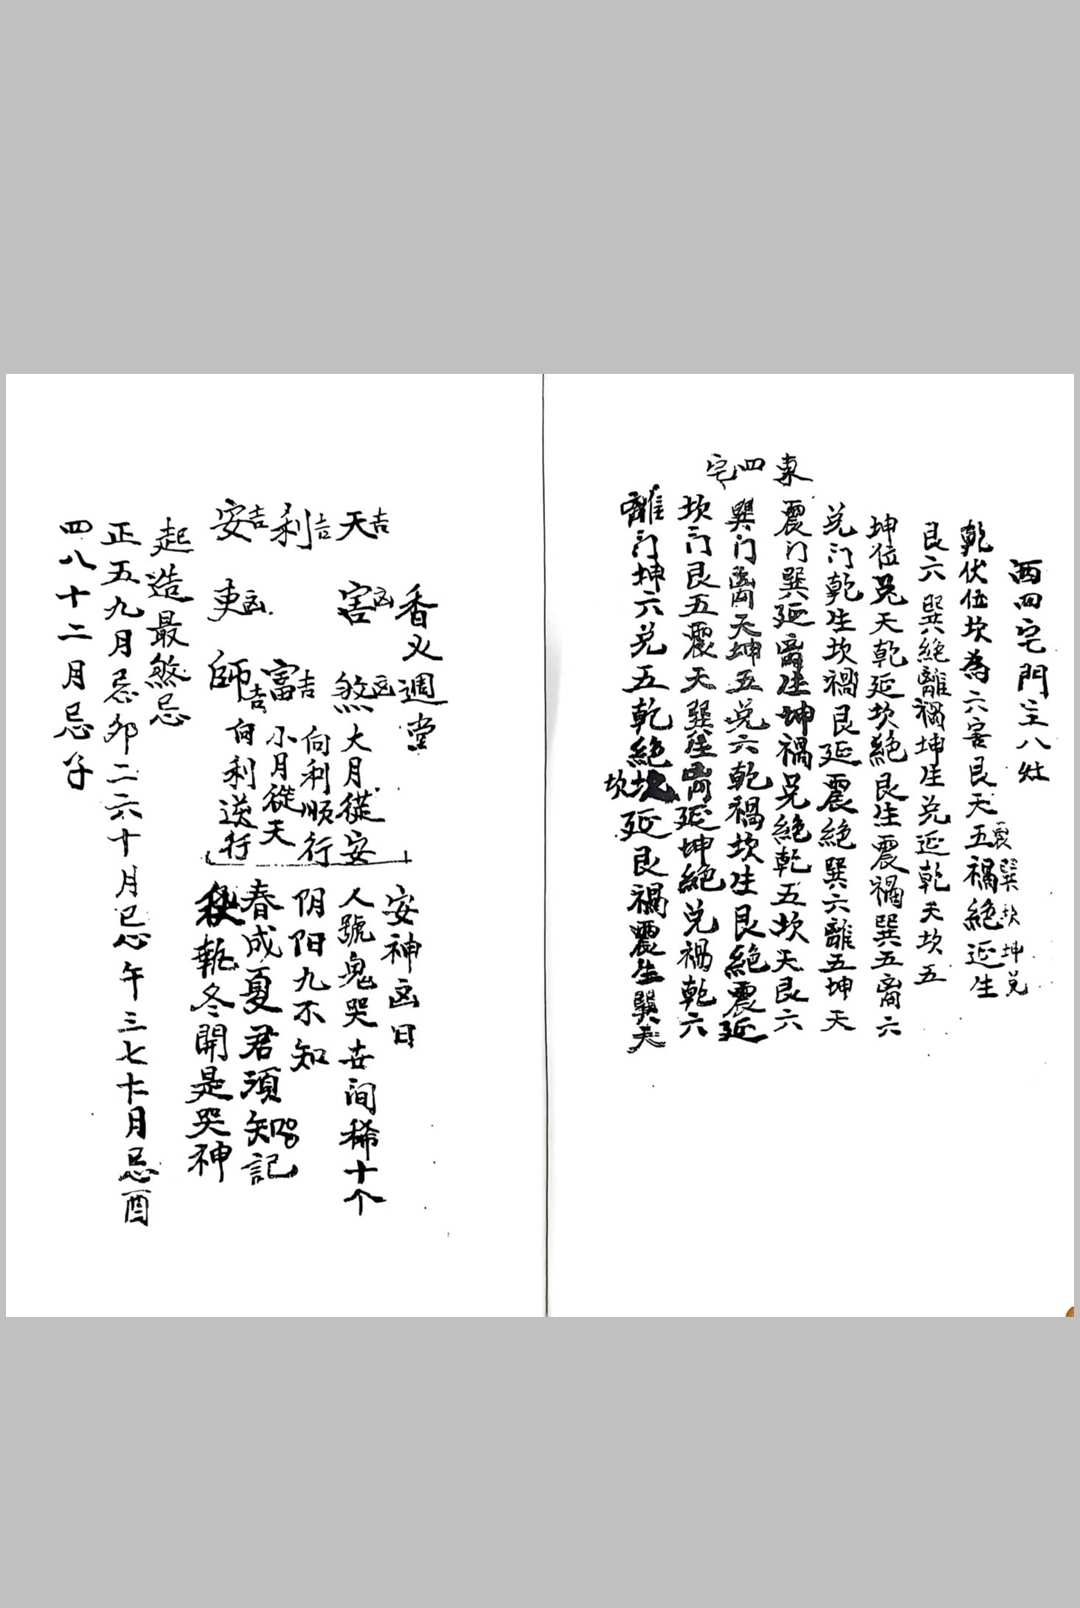 西四宅門主八灶
乾伏位坎為六害艮天五禍絶延生
震巽坎坤兑
艮六巽絶離禍坤生兑延乾天坎五
坤位兑天乾延坎絶艮生震禍巽五离六
兑门乾生坎禍艮延震絶巽六離五坤天
東四宅
震门巽延离生坤禍兑絶乾五坎天艮六
巽门离天坤五兑六乾禍坎生艮絶震延
坎门艮五震天巽生离延坤絶兑禍乾六
離门坤六兑五乾絶坎延艮禍震生巽天
坎
香火週堂
天吉
利吉
安吉
害凶
煞凶
富吉
師吉
大月從安
向利順行
小月從天
向利逆行
安神凶日
人號鬼哭世间稀十个
阴阳九不知
春成夏君須知
記
秋執冬開是哭神
起造最煞忌
正五九月忌卯二六十月忌午三七十一月忌酉
四八十二月忌子